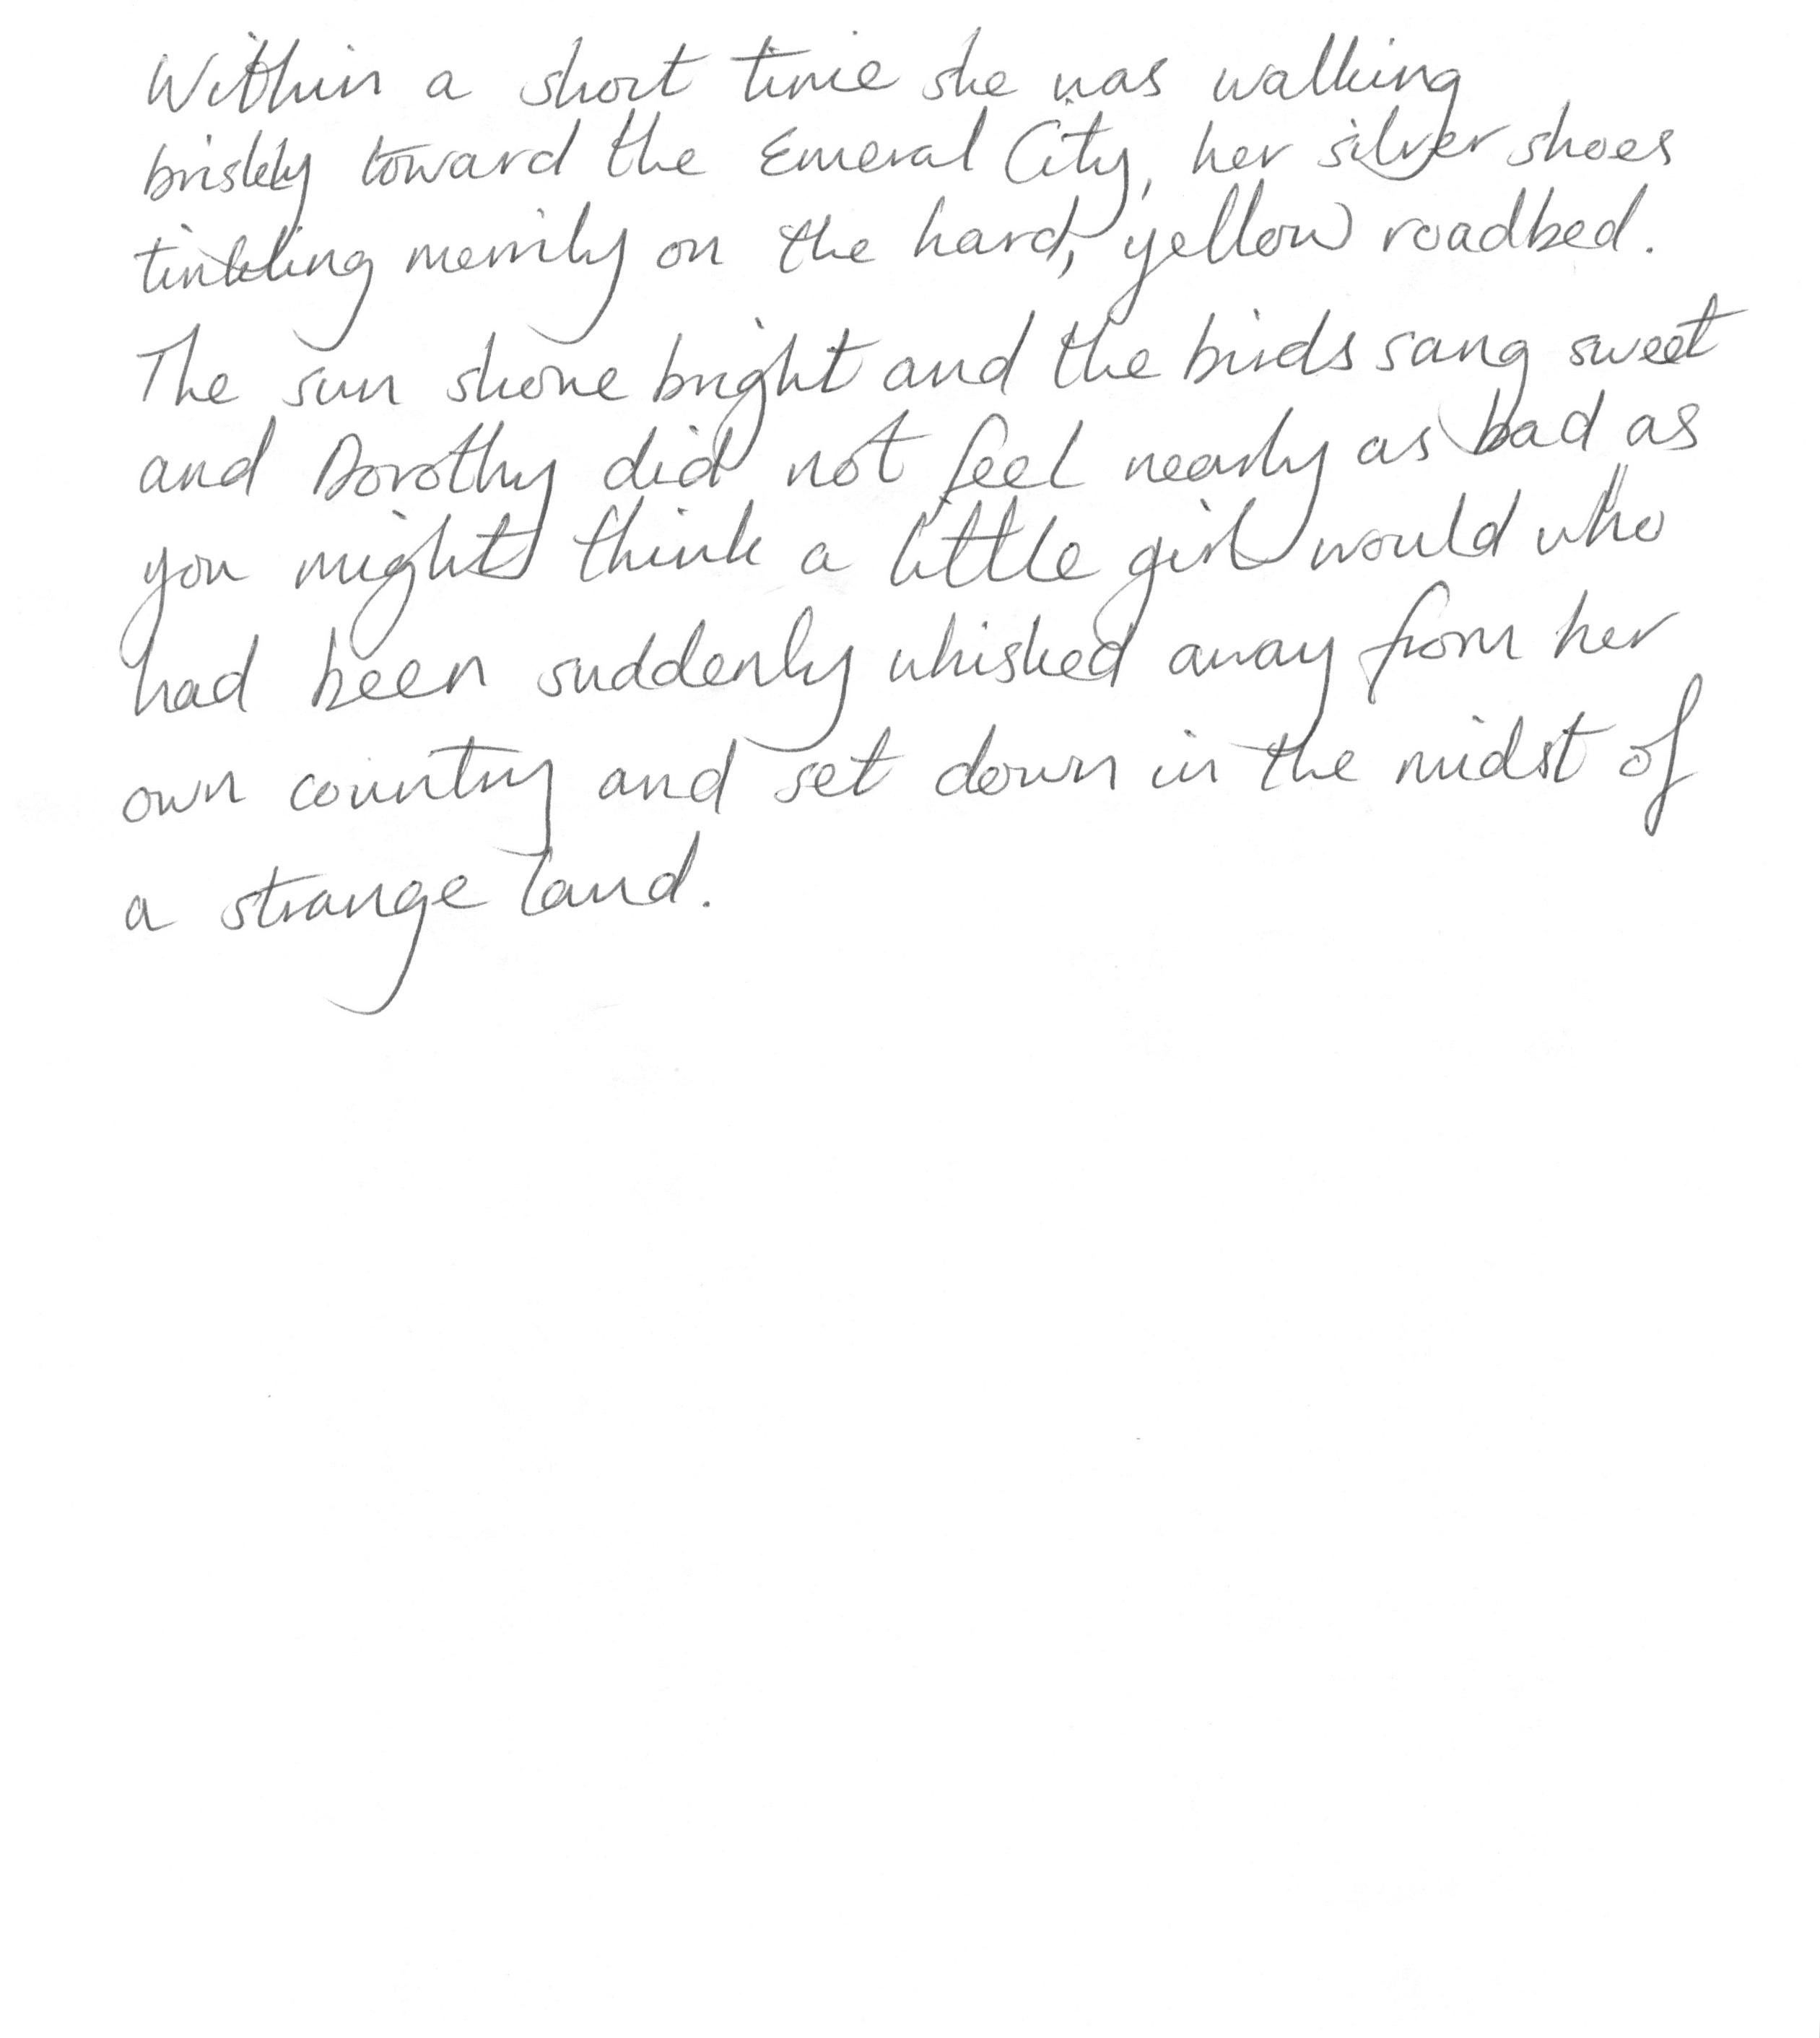 Within a short time she was walking
briskly toward the Emeral City, her silver shoes
tinkling merrily on the hard, yellow roadbed.
The sun shone bright and the birds sang sweet
and Dorothy did not feel nearly as bad as
you might think a little girl would who
had been suddenly whisked away from her
own country and set down in the midst of
a strange land.